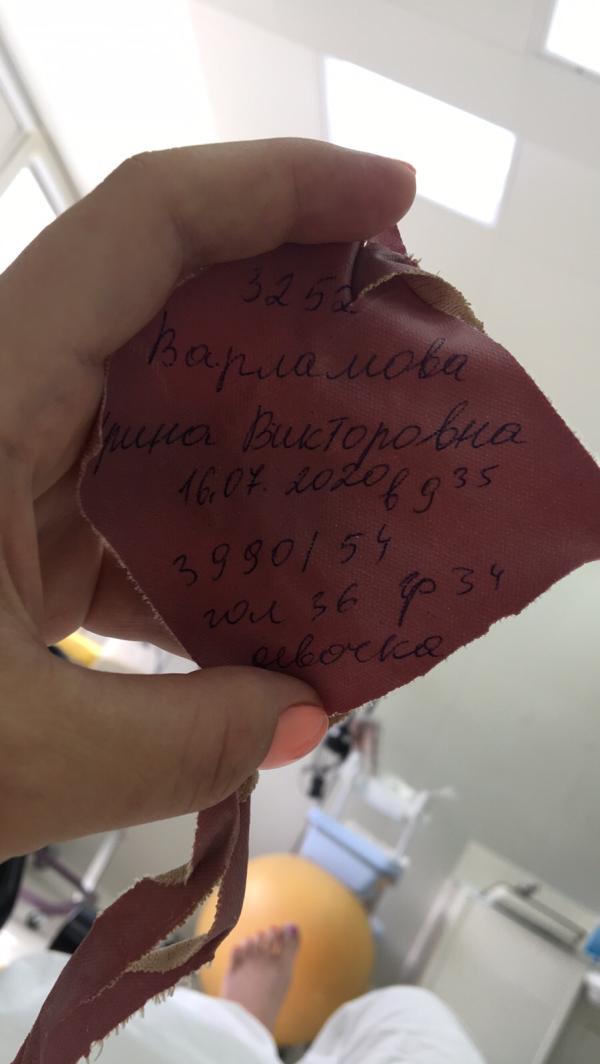 3252
Варламова
рина Викторовна
16.07.2020 в 9 35
3990/54
гол 36 гр 34
девочка